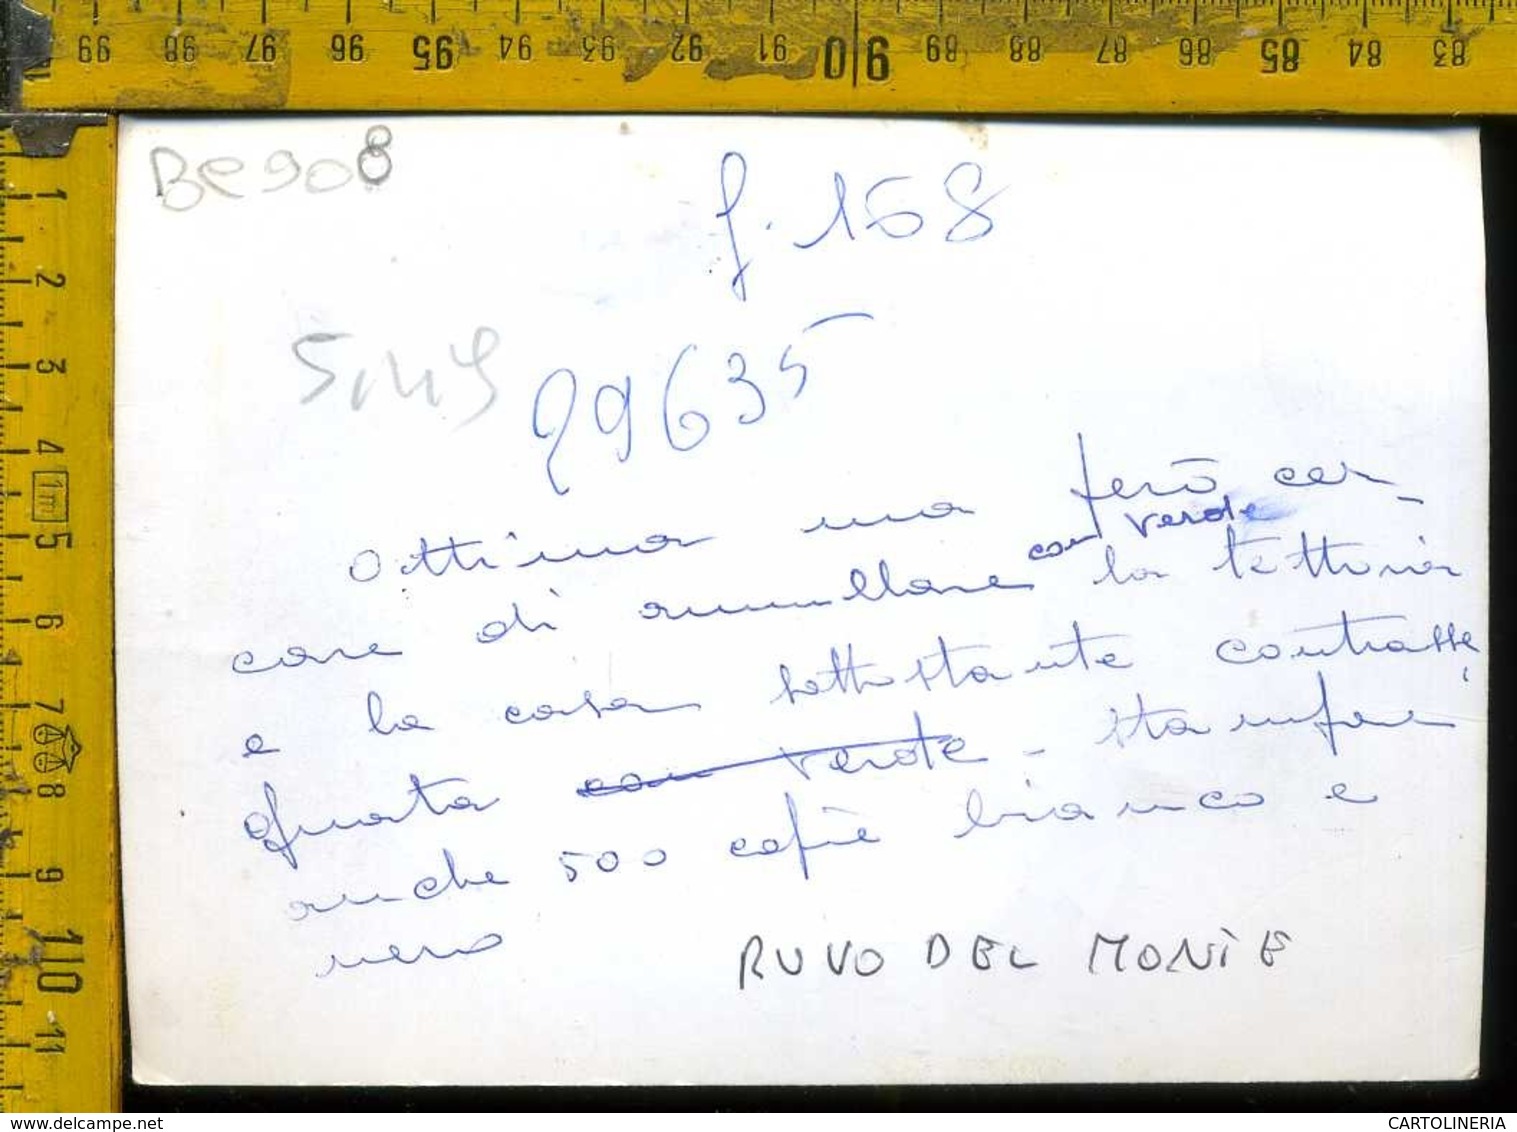 99 98 97 96 95 94 93 92 91 90 89 88 87 86 85 84 83
1
2
3
4
1m
5
6
7
8
9
10
11
Be 908
f. 158
5,149
29635
Ottima ma però cer-
con verde
care di annullare la tettoia
e la casa sottostante contrasse
gnata con verde - stampare
anche 500 copie bianco e
nero
RUVO DEL MONTE
www.delcampe.net
CARTOLINERIA